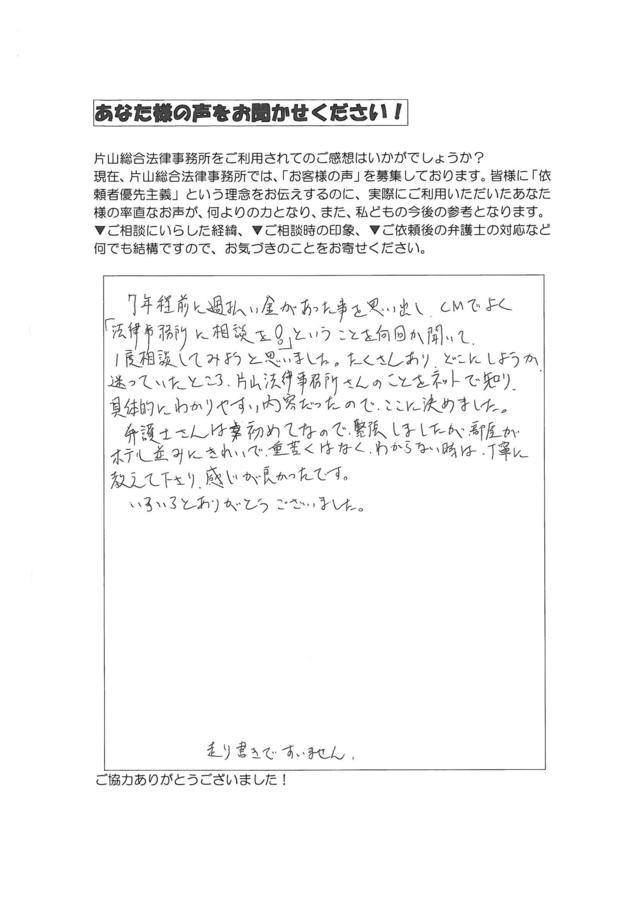 あなた様の声をお聞かせください！
片山総合法律事務所をご利用されてのご感想はいかがでしょうか？
現在、片山総合法律事務所では、「お客様の声」を募集しております。皆様に「依
頼者優先主義」という理念をお伝えするのに、実際にご利用いただいたあなた
様の率直なお声が、何よりの力となり、また、私どもの今後の参考となります。
▼ご相談にいらした経緯、▼ご相談時の印象、▼ご依頼後の弁護士の対応など
何でも結構ですので、お気づきのことをお寄せください。
7年程前に過払い金があった事を思い出し、CMでよく
「法律事務所に相談を！」ということを何回か聞いて、
1度相談してみようと思いました。たくさんあり、どこにしようか
迷っていたところ、片山法律事務所さんのことをネットで知り、
具体的にわかりやすい内容だったので、ここに決めました。
弁護士さんは初めてなので、緊張しましたが、部屋が
ホテル並みにきれいで、重苦くはなく、わからない時は、丁寧に
教えて下さり、感じが良かったです。
いろいろとありがとうございました。
走り書きですいません。
ご協力ありがとうございました！